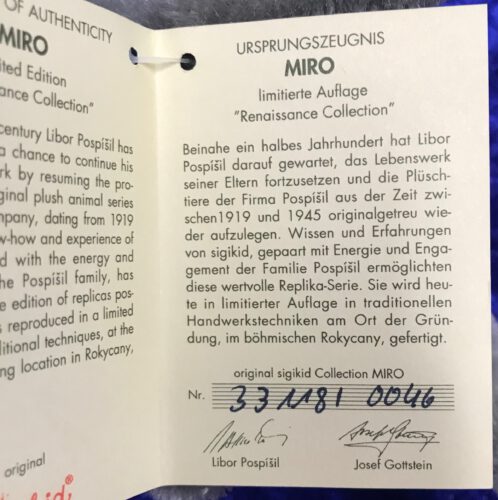 OF AUTHENTICITY
MIRO
ted Edition
ance Collection"
century Libor Pospíšil has
a chance to continue his
rk by resuming the pro-
ginal plush animal series
mpany, dating from 1919
w-how and experience of
d with the energy and
he Pospíšil family, has
e edition of replicas pos-
s reproduced in a limited
ditional techniques, at the
ng location in Rokycany,
original
URSPRUNGSZEUGNIS
MIRO
limitierte Auflage
"Renaissance Collection"
Beinahe ein halbes Jahrhundert hat Libor
Pospíšil darauf gewartet, das Lebenswerk
seiner Eltern fortzusetzen und die Plüsch-
tiere der Firma Pospíšil aus der Zeit zwi-
schen1919 und 1945 originalgetreu wie-
der aufzulegen. Wissen und Erfahrungen
von sigikid, gepaart mit Energie und Enga-
gement der Familie Pospíšil ermöglichten
diese wertvolle Replika-Serie. Sie wird heu-
te in limitierter Auflage in traditionellen
Handwerkstechniken am Ort der Grün-
dung, im böhmischen Rokycany, gefertigt.
original sigikid Collection MIRO
Nr. 331181 0046
Libor Pospíšil Josef Gottstein